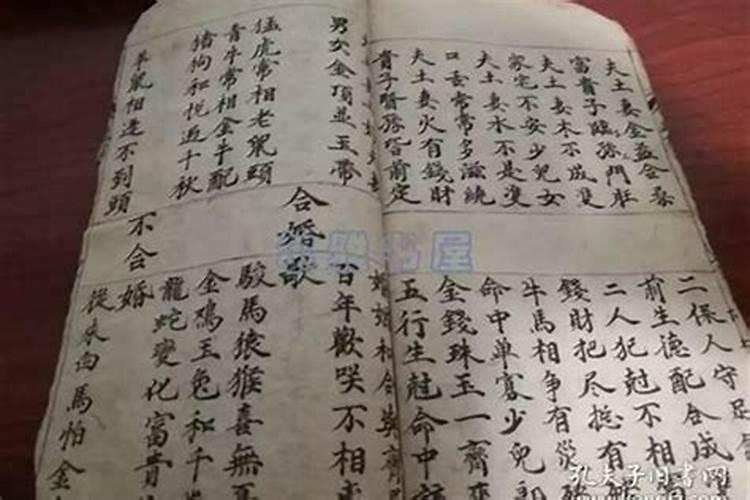 夫土妻金益合
富貴子臨孫門旺
夫土妻木不成雙
家宅不安少兒女
夫土妻水不是雙
口舌常常多滋繞
夫土妻火有錢財
貴子賢孫皆前定
二保人守足
前生德配合成
二人犯尅不相
錢財把尽挺有
牛馬相争有災
命中单寡少兒
金錢珠玉一齊
五行生尅命中
婚姻和合
男女金頂並玉帶
猛虎常相老鼠頭
青牛常相金牛配
猪狗和悦過千秋
羊鼠相逢不到頭
合婚歌
百年歡咲不相
駿馬猿猴喜無
金鷄玉兔和千
龍蛇變化富貴
不合婚
從来白馬怕金
书屋
孔夫子旧書网